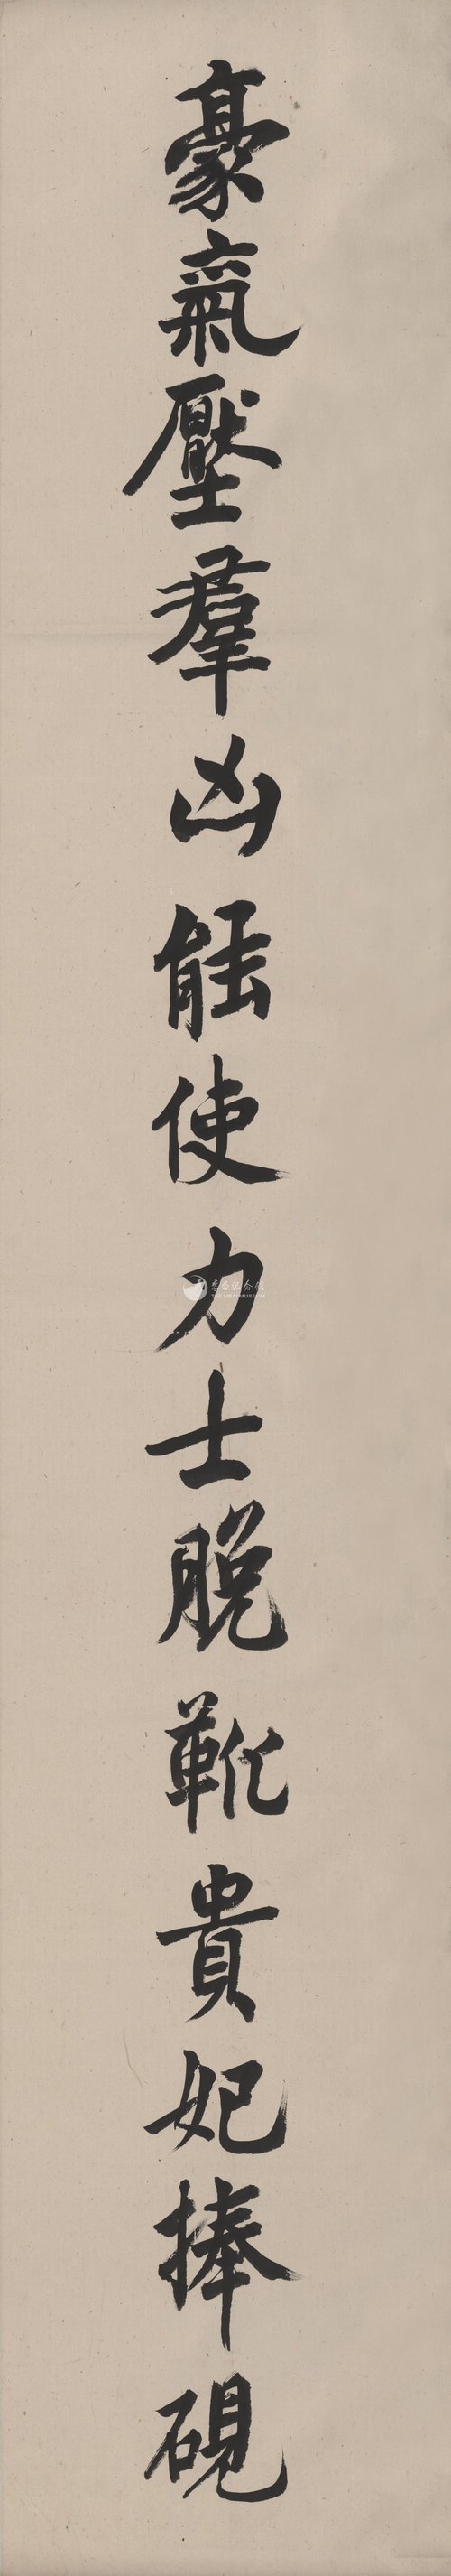 豪氣壓羣凶能使力士脫靴貴妃捧硯